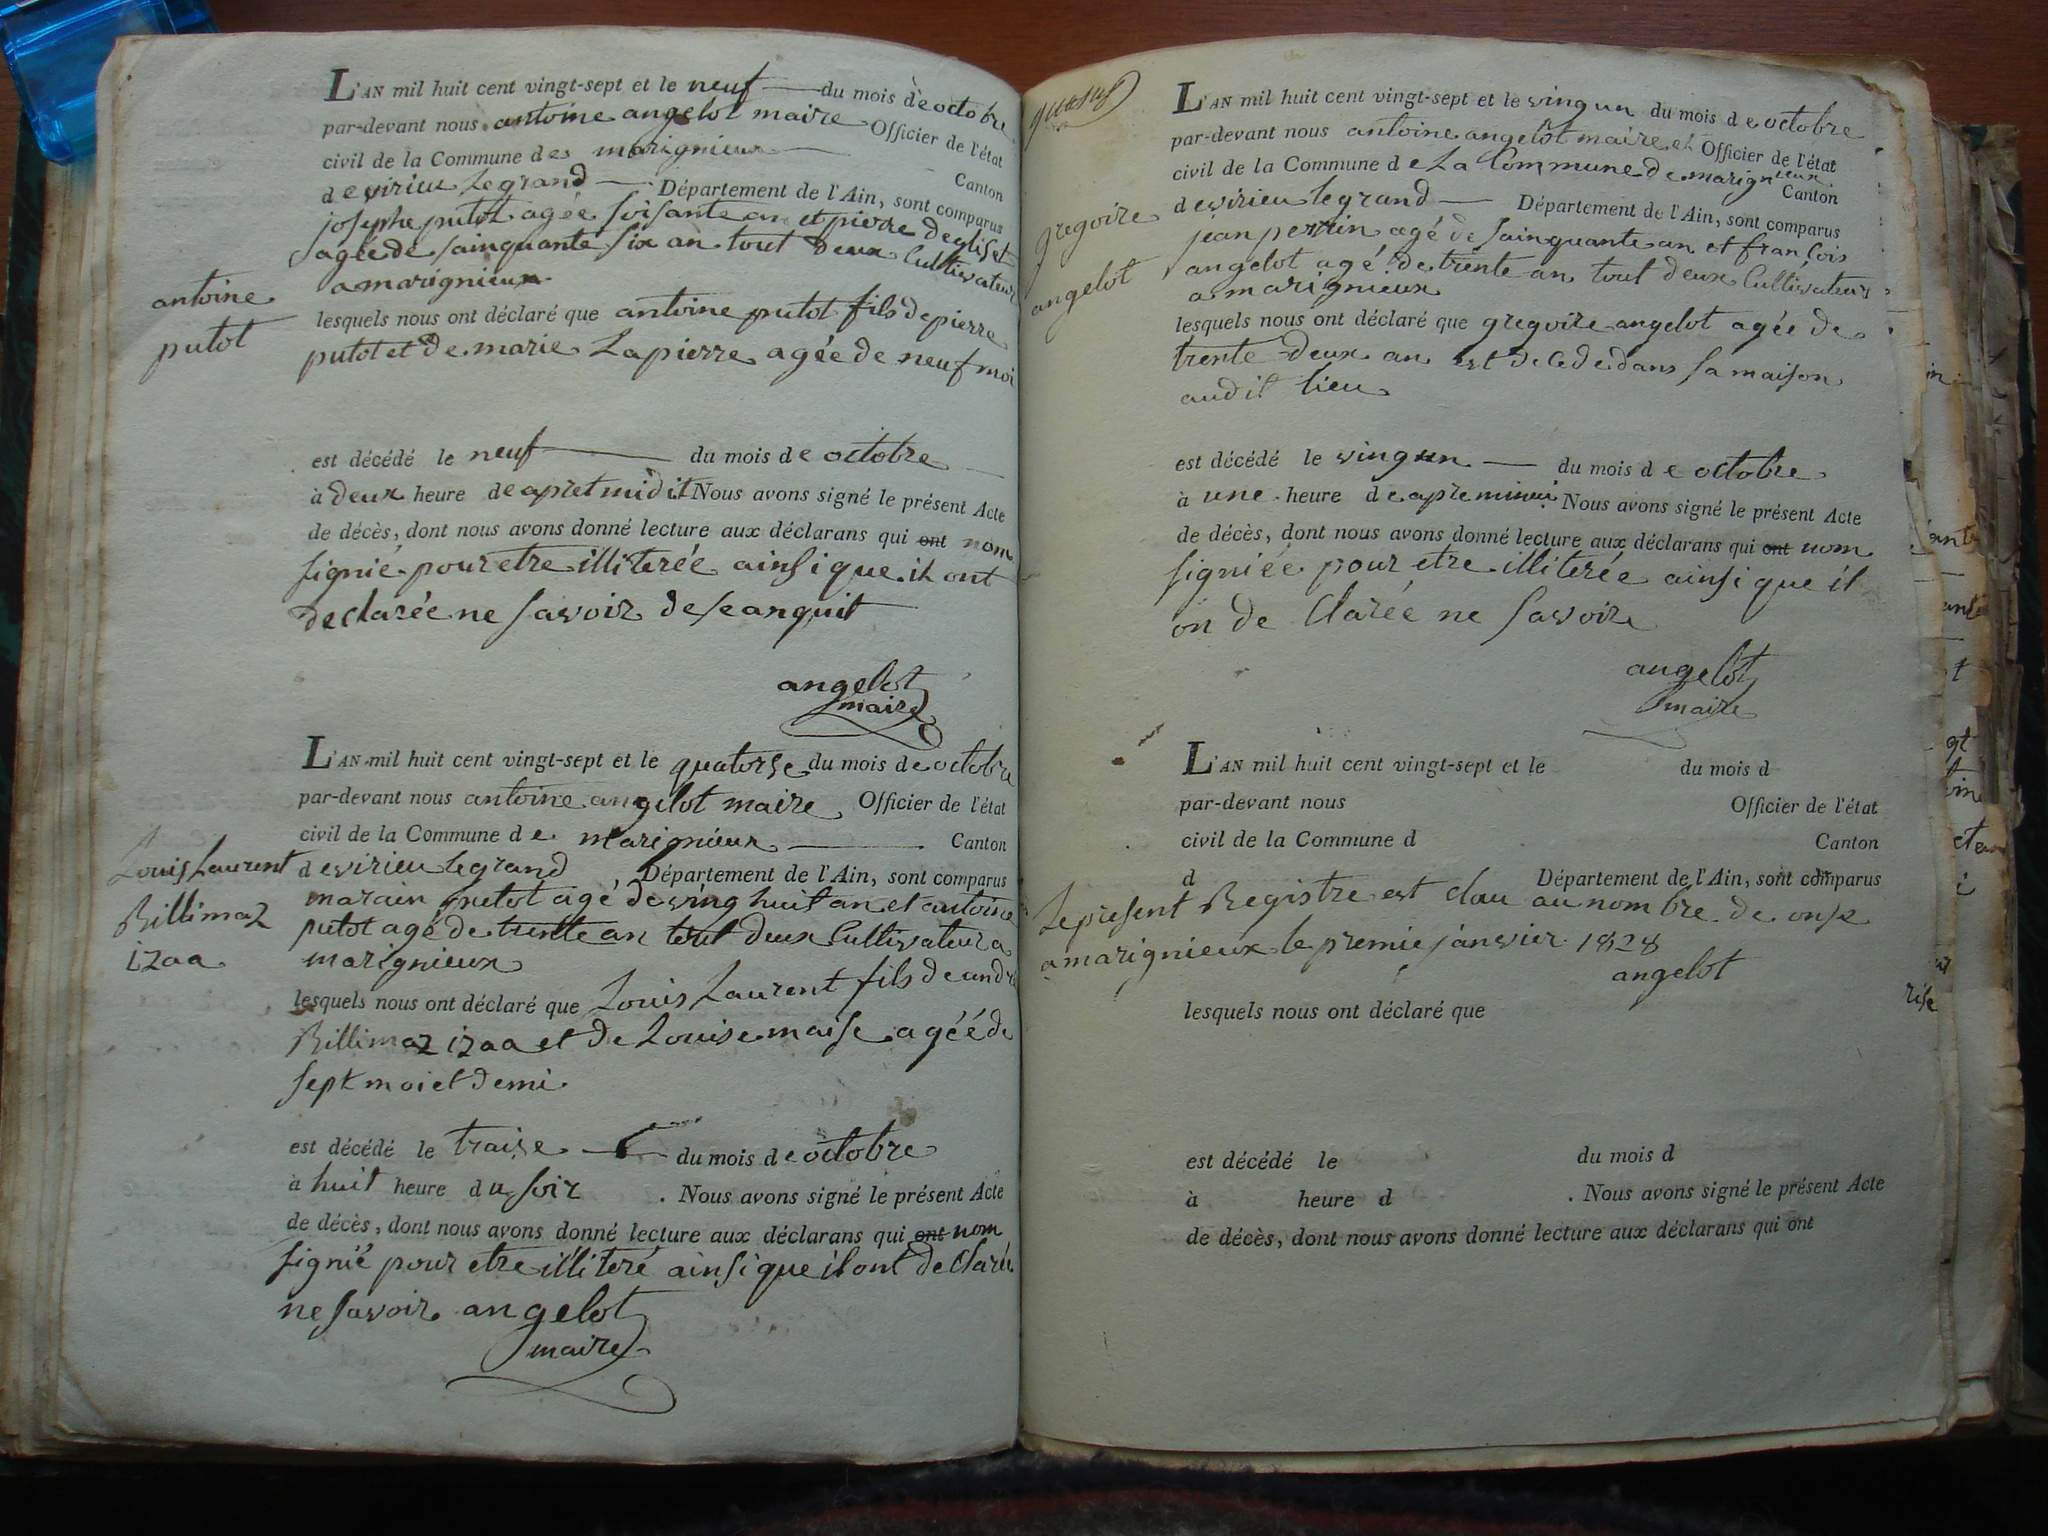 L'AN mil huit cent vingt-sept et le neuf du mois de octobre
par-devant nous antoine angelot maire Officier de l'état
civil de la Commune de marignieux Canton
de virieu Legrand Département de l'Ain, sont comparus
josephe putot agée soisante an et pierre
agée de sainquante six an tout deux Cultivateur
a marignieux
antoine
putot
lesquels nous ont déclaré que antoine putot fils de pierre
putot et de marie Lapierre agée de neuf moi
est décédé le neuf du mois de octobre
à deux heure de apret midit Nous avons signé le présent Acte
de décès, dont nous avons donné lecture aux déclarans qui ont nom
signié pour etre illiterée ainsi que il ont
declarée ne savoir de se anquit
angelot
maire
L'AN mil huit cent vingt-sept et le quatorse du mois de octobre
par-devant nous antoine angelot maire Officier de l'état
civil de la Commune de marignieux Canton
de virieu Legrand Département de l'Ain, sont comparus
Louis Laurent
Billimaz
izaa
putot agé de ving huit an et antoine
putot agé de trente an tout deux Cultivateur a
marignieux
lesquels nous ont déclaré que Louis Laurent fils de andr
Billimaz izaa et de Louise maise agéé de
sept moi et demi
est décédé le traise du mois de octobre
à huit heure du soir . Nous avons signé le présent Acte
de décès, dont nous avons donné lecture aux déclarans qui ont nom
signié pour etre illiteré ainsi que il ont declarée
ne savoir angelot
maire
L'AN mil huit cent vingt-sept et le vingun du mois de octobre
par-devant nous antoine angelot maire et Officier de l'état
civil de la Commune de La Commune de marignieux Canton
de virieu legrand Département de l'Ain, sont comparus
gregoire
angelot
jean perrin agé de sainquante an et francois
angelot agé de trente an tout deux Cultivateurs
a marignieux
lesquels nous ont déclaré que gregoire angelot agée de
trente deux an est decede dans sa maison
audit lieu
est décédé le vingun du mois de octobre
à une heure de apre minui Nous avons signé le présent Acte
de décès, dont nous avons donné lecture aux déclarans qui ont nom
signiée pour etre illiterée ainsi que il
on de Clarée ne savoir
angelot
maire
L'AN mil huit cent vingt-sept et le du mois d
par-devant nous Officier de l'état
civil de la Commune d Canton
d Département de l'Ain, sont comparus
Le present Registre est clau au nombre de onse
a marignieux le premie janvier 1828
angelot
lesquels nous ont déclaré que
est décédé le du mois d
à heure d . Nous avons signé le présent Acte
de décès, dont nous avons donné lecture aux déclarans qui ont